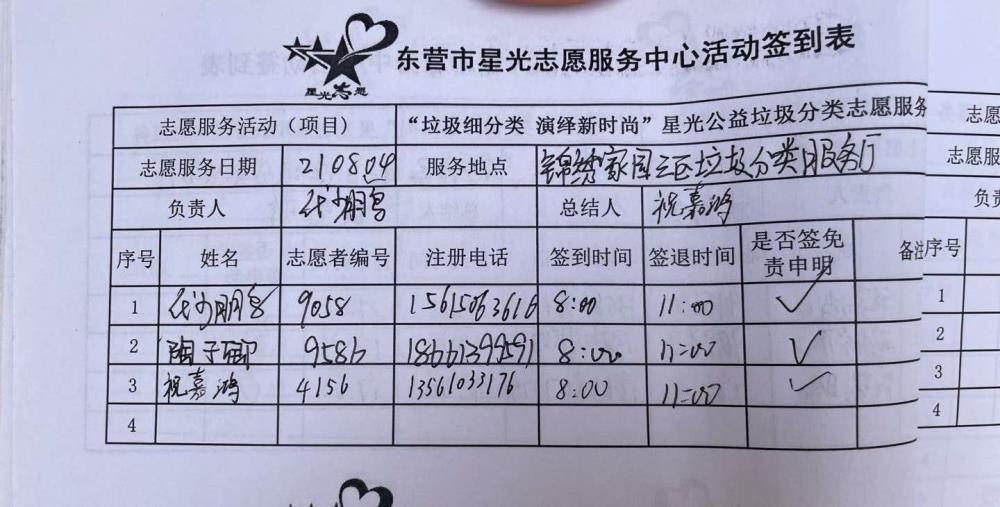 东营市星光志愿服务中心活动签到表
星光志愿
志愿服务活动（项目） “垃圾细分类 演绎新时尚”星光公益垃圾分类志愿服务
志愿服务日期 210804 服务地点 锦绣家园三区垃圾分类服务厅
负责人 总结人 祝嘉鸿
序号 姓名 志愿者编号 注册电话 签到时间 签退时间 是否签免责申明 备注
1 9058 15615063616 8:00 11:00 ✓
2 陶子御 9586 18661399591 8:00 11:00 ✓
3 祝嘉鸿 4156 13561033176 8:00 11:00 ✓
4
志愿
志愿服
负责
序号
1
2
3
4